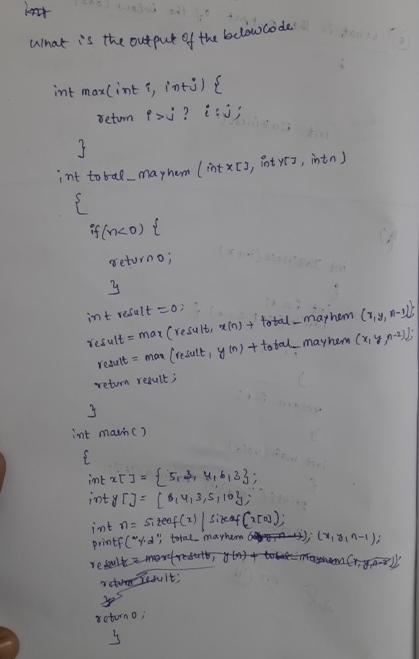 what is the output of the below code
int max(int i, int j) {
return i>j? i:j;
}
int total_mayhem (int x[], int y[], int n)
{
if(n<0) {
return 0;
}
int result = 0;
result = max (result, x(n) + total_mayhem (x,y,n-1));
result = max (result, y(n) + total_mayhem (x,y,n-2));
return result;
}
int main()
{
int x[] = { 5, 3, 4, 6, 3};
int y[] = { 8, 4, 3, 5, 10};
int n = sizeof(x) | sizeof(x[0]);
printf("%d", total_mayhem (x,y,n-1);
result = max(result, y(n) + total_mayhem(x,y,n-2));
return result;
}
return 0;
}